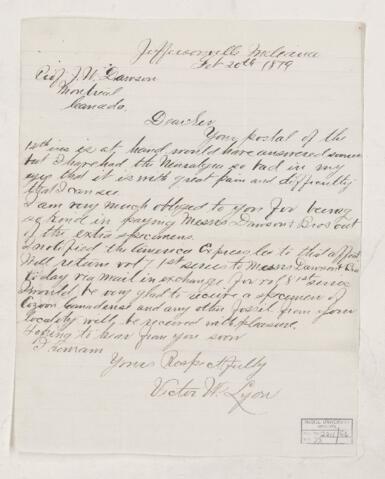 Jeffersonville Indiana
Feb 20th 1879
Prof. J. W. Dawson
Montreal
Canada.
Dear Sir
Your postal of the
inst is at hand would have answered sooner
but I have had the Neuralgia so bad in my
eyes that it is with great pain and difficulty
that I can see.
I am very much obliged to you for being
so kind in paying Messrs Dawson Bros out
of the extra specimens.
I notified the American Express Co to that affect
Will return vol 7 1st series to Messrs Dawson Bro
to day via mail in exchange for vol 8 1st series
I would be very glad to receive a specimen of
Eozoon Canadense and any other fossil from your
locality will be received with pleasure.
Hoping to hear from you soon
I remain
Yours Respectfully
Victor W. Lyon
McGILL UNIVERSITY
ARCHIVES